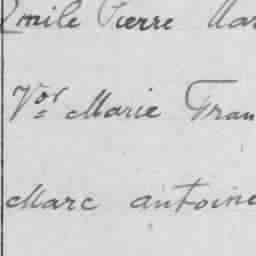 Emile Pierre Mar
Vor Marie Fran
Marc antoine